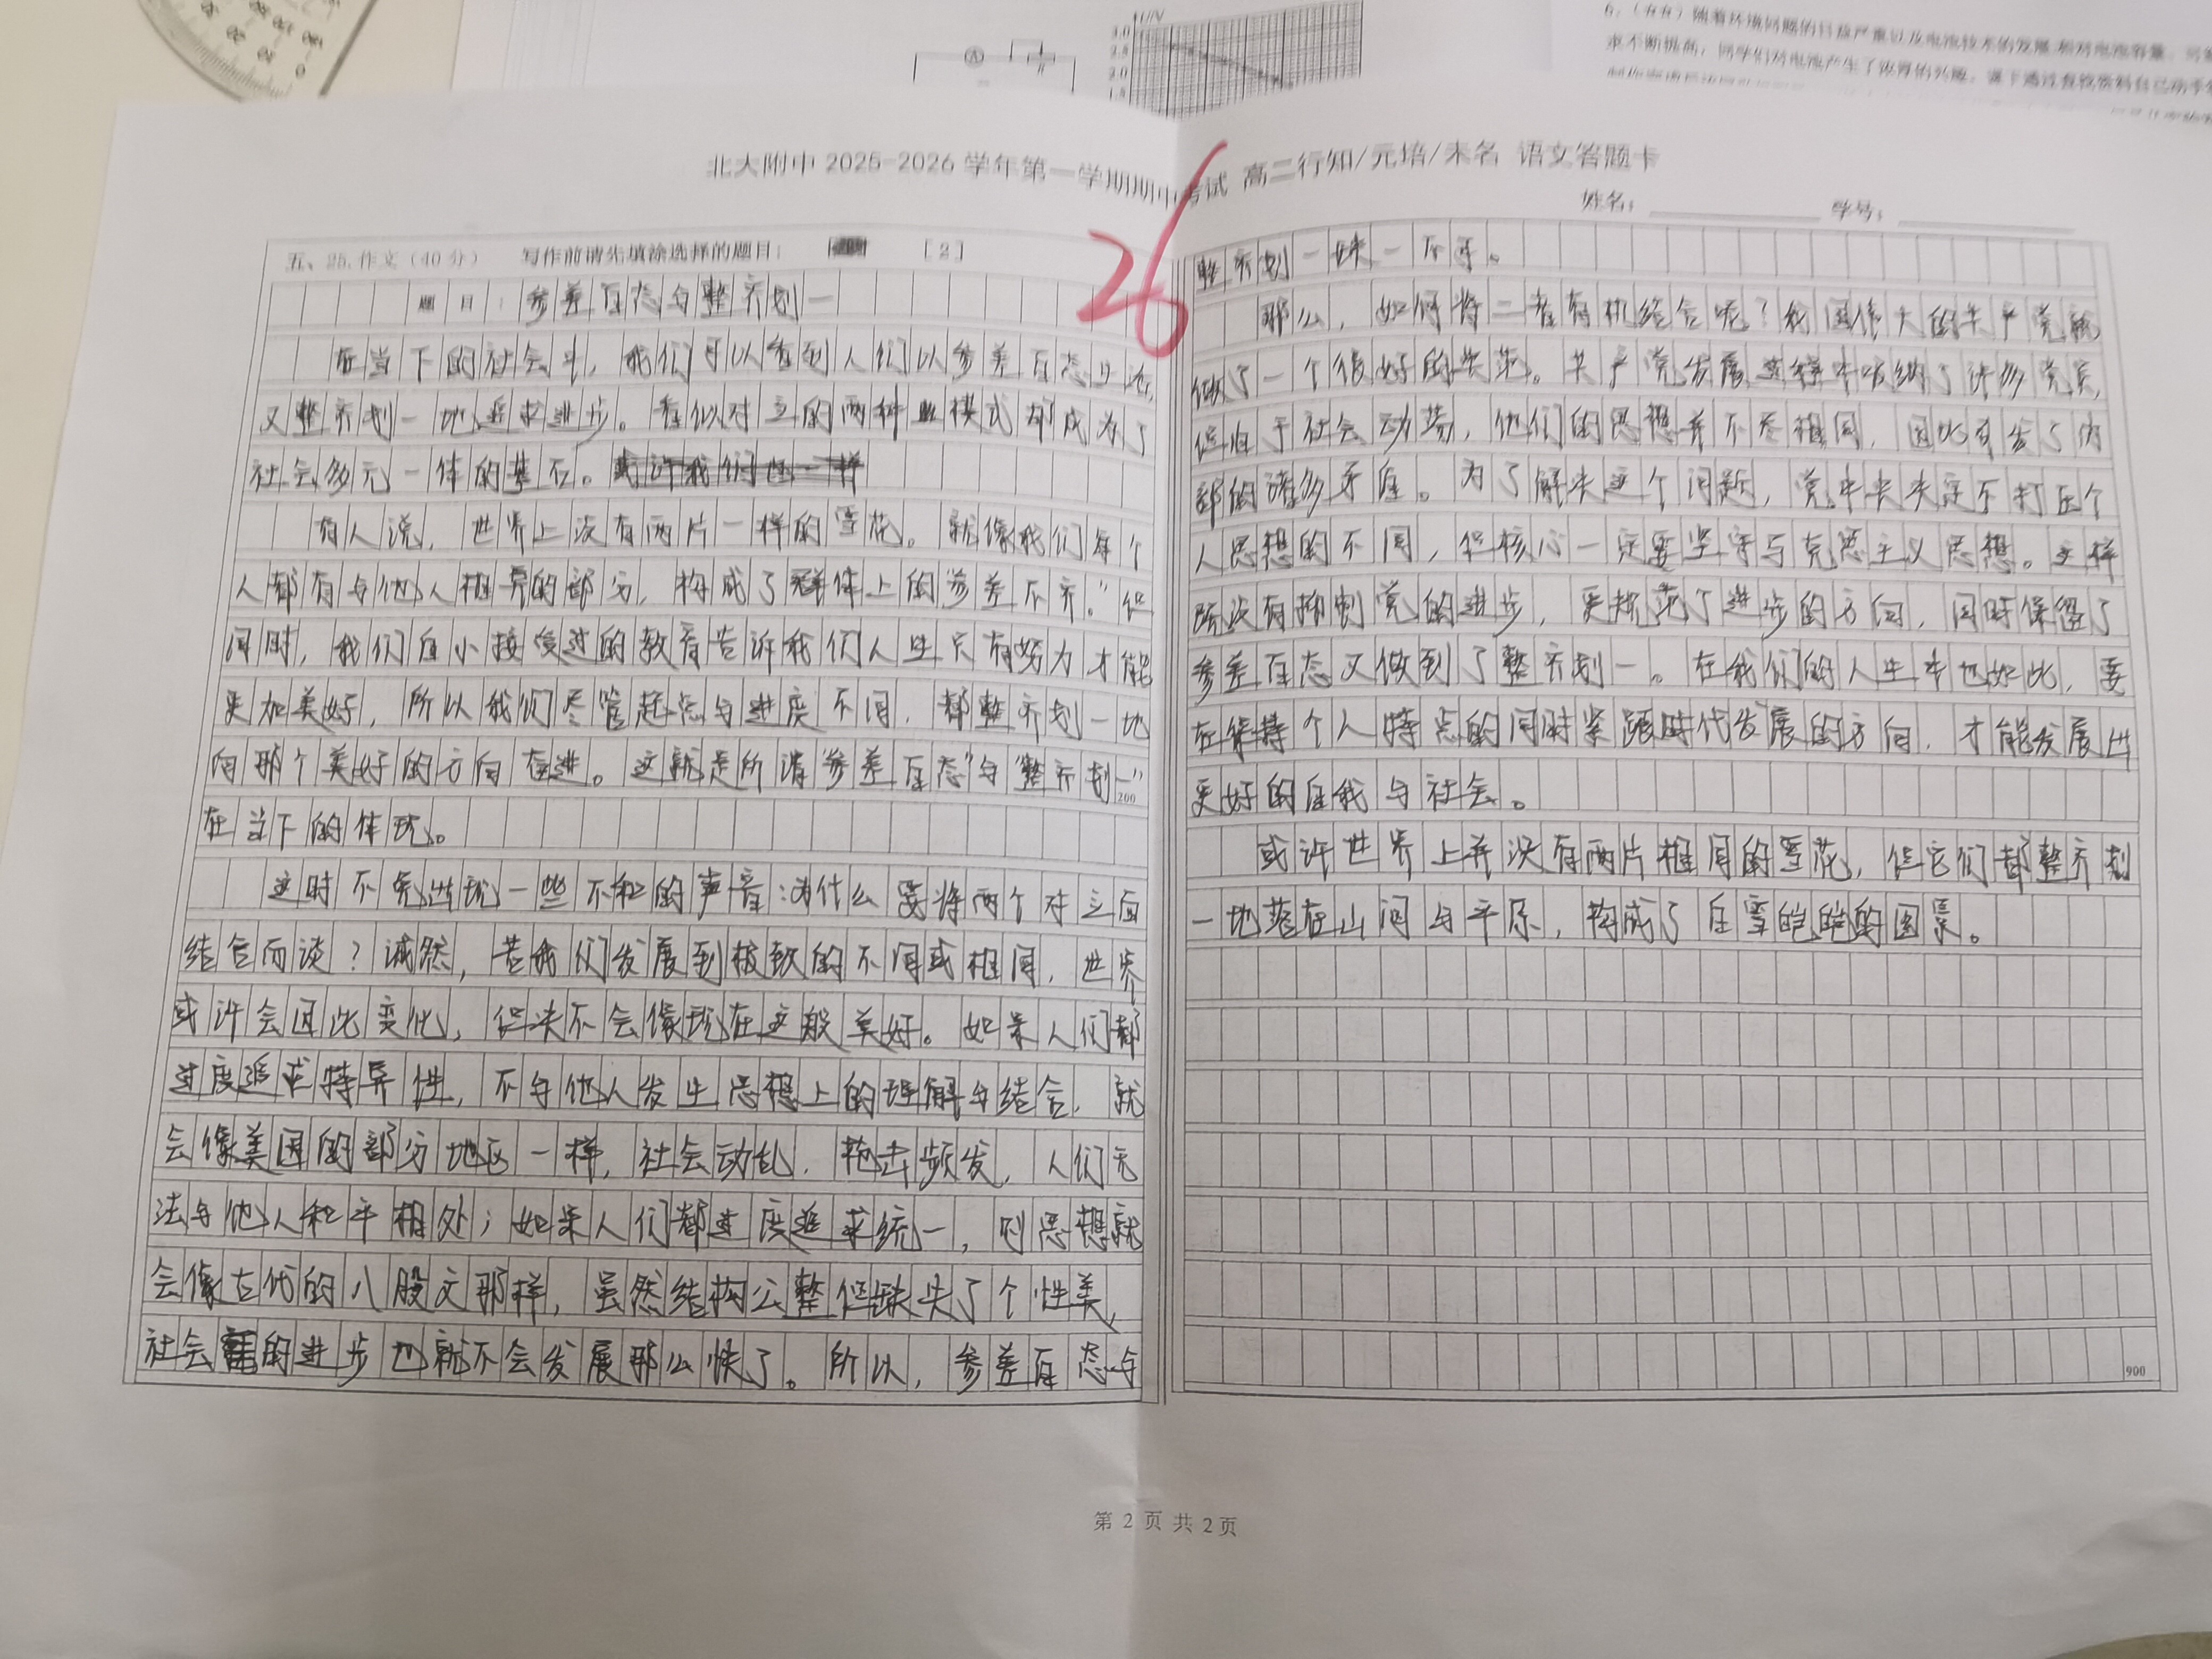 U/V
3.0
2.5
2.0
北大附中 2025-2026 学年第一学期期中考试 高二行知/元培/未名 语文答题卡
姓名： 学号：
26
五、25.作文（40分） 写作前请先填涂选择的题目： [2]
题目：参差百态与整齐划一
在当下的社会中，我们可以看到人们以参差百态生活，
又整齐划一地追求进步。看似对立的两种模式却成为了
社会多元一体的基石。或许我们也一样
有人说，世界上没有两片一样的雪花。就像我们每个
人都有与他人相异的部分，构成了群体上的“参差不齐。”但
同时，我们自小接受过的教育告诉我们人生只有努力才能
更加美好，所以我们尽管起点与进度不同，都整齐划一地
向那个美好的方向奋进。这就是所谓“参差百态”与“整齐划一”
200
在当下的体现。
这时不免出现一些不和的声音：为什么要将两个对立面
结合而谈？诚然，若我们发展到极致的不同或相同，世界
或许会因此变化，但决不会像现在这般美好。如果人们都
过度追求特异性，不与他人发生思想上的理解与结合，就
会像美国的部分地区一样，社会动乱，枪击频发，人们无
法与他人和平相处；如果人们都过度追求统一，则思想就
会像古代的八股文那样，虽然结构公整但缺失了个性美，
社会的进步也就不会发展那么快了。所以，参差百态与
整齐划一缺一不可。
那么，如何将二者有机结合呢？我国伟大的共产党就
做了一个很好的示范。共产党发展过程中吸纳了许多党员，
但由于社会动荡，他们的思想并不尽相同，因此引发了内
部的诸多矛盾。为了解决这个问题，党中央决定不打压个
人思想的不同，但核心一定要坚守马克思主义思想。这样
既没有抑制党的进步，更规范了进步的方向，同时保留了
参差百态又做到了整齐划一。在我们的人生中也如此，要
在保持个人特点的同时紧跟时代发展的方向，才能发展出
更好的自我与社会。
或许世界上并没有两片相同的雪花，但它们都整齐划
一地落在山间与平原，构成了白雪皑皑的图景。
900
第 2 页 共 2 页